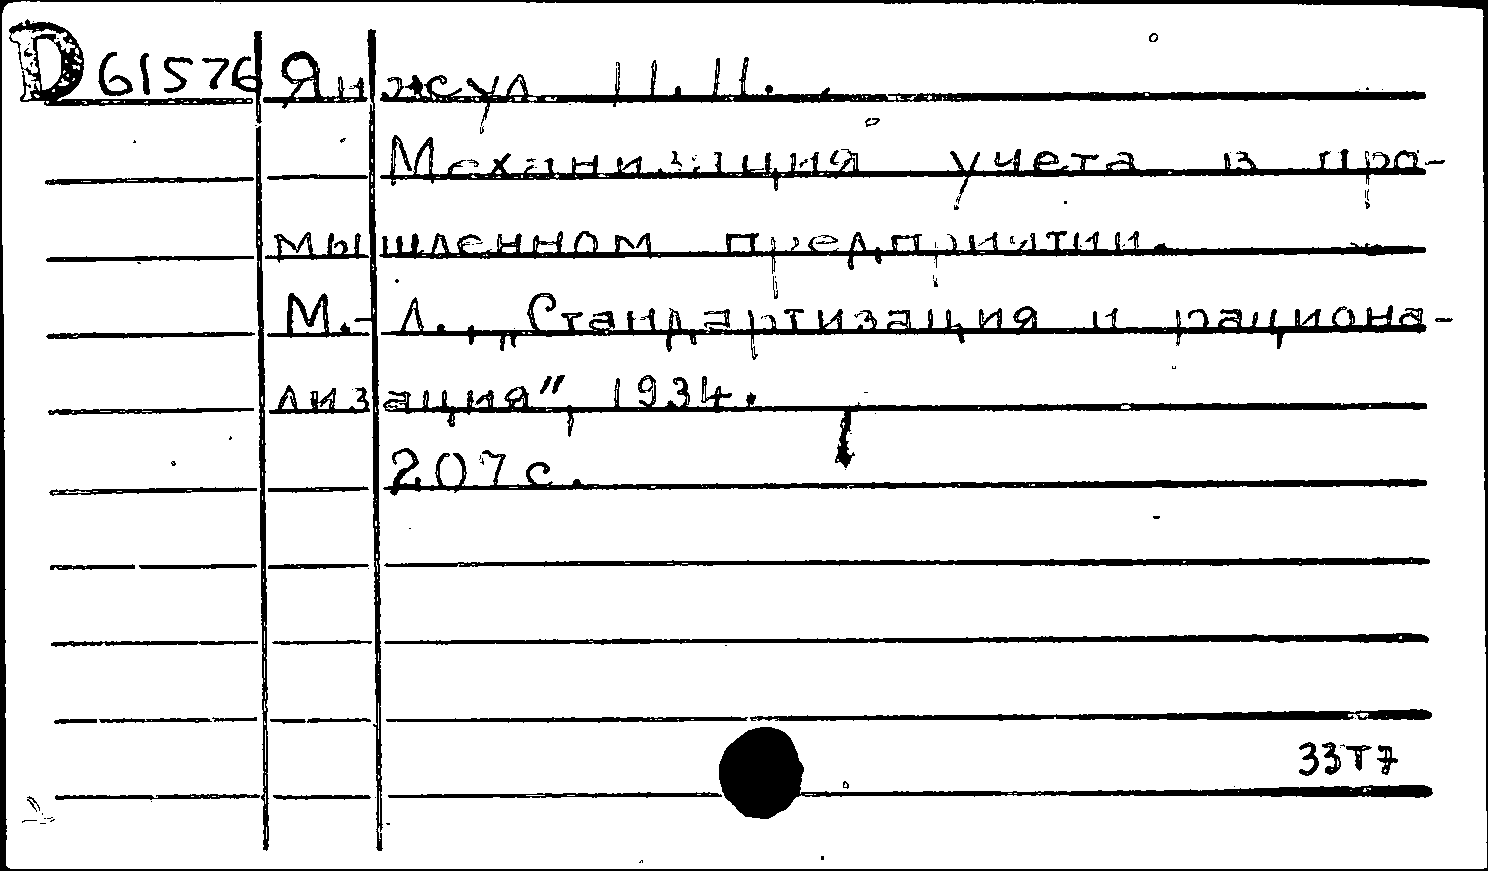 D 61576 Янжул И. И.
Механизация учета в про-
мышленном предприятии.
М.-Л., „Стандартизация и рациона-
лизация", 1934.
207 с.
33Т7